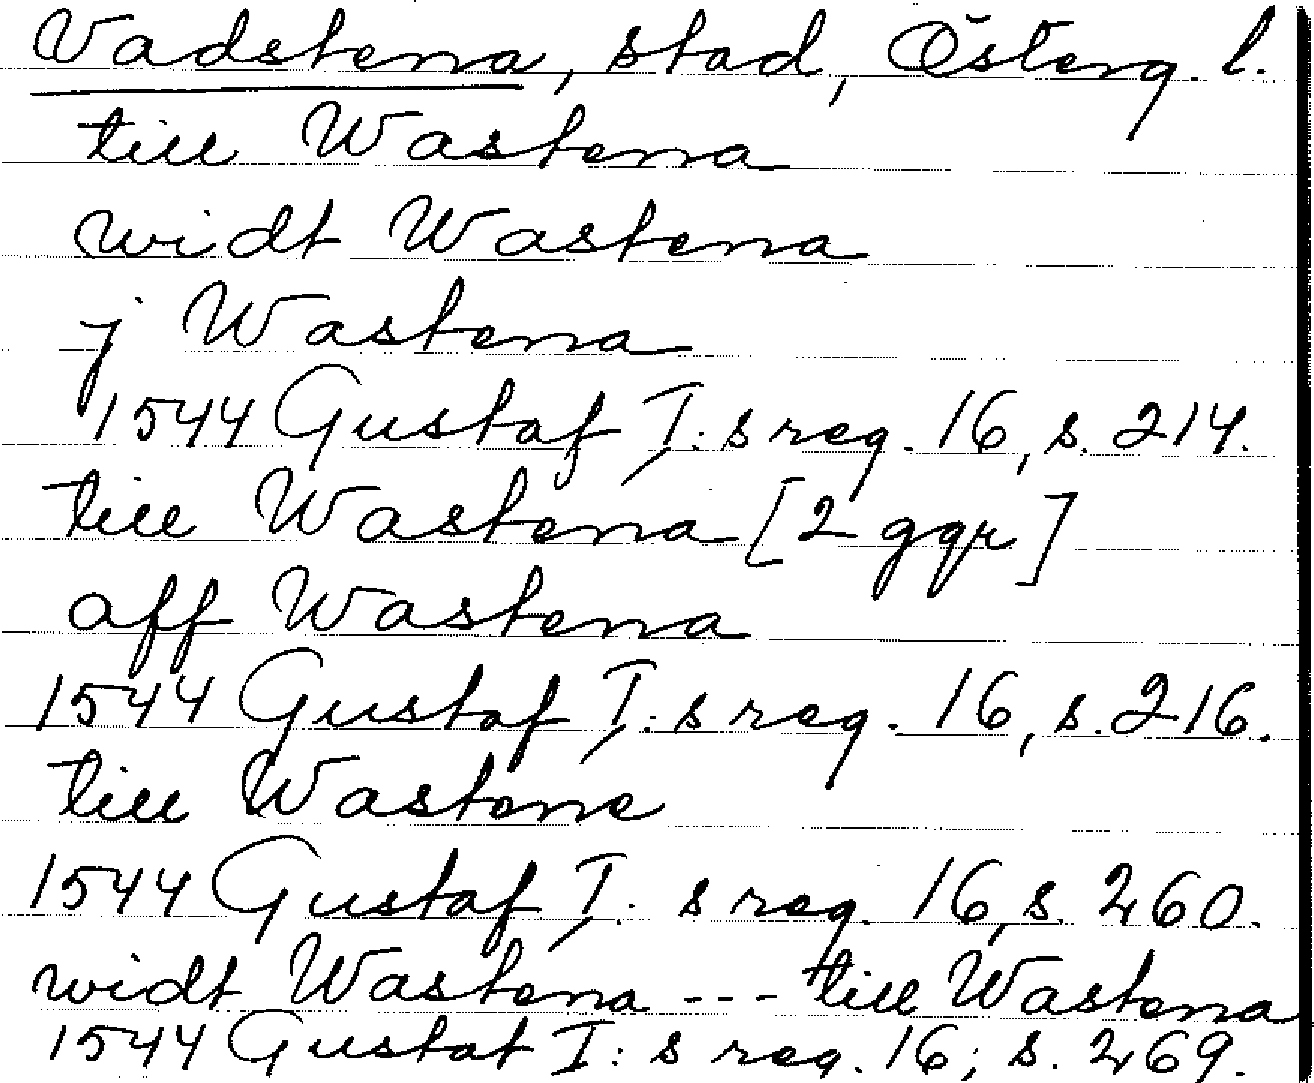 Vadstena, stad, Österg. l.
till Wastena
widt Wastena
j Wastena
1544 Gustaf I: s reg. 16, s. 214.
till Wastena [2 ggr]
aff Wastena
1544 Gustaf I: s reg. 16, s. 216.
till Wastene
1544 Gustaf I: s reg. 16, s. 260.
widt Wastena --- till Wastena
1544 Gustaf I: s reg. 16; s. 269.